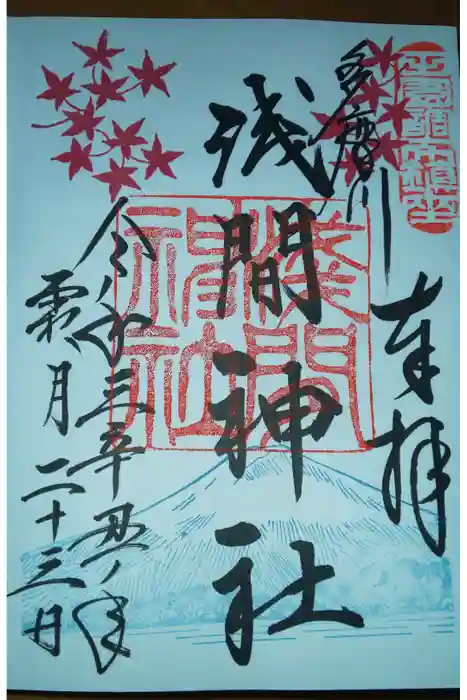 奉拝
多摩川
浅間神社
浅間神社
令和三辛丑ノ年
霜月二十三日